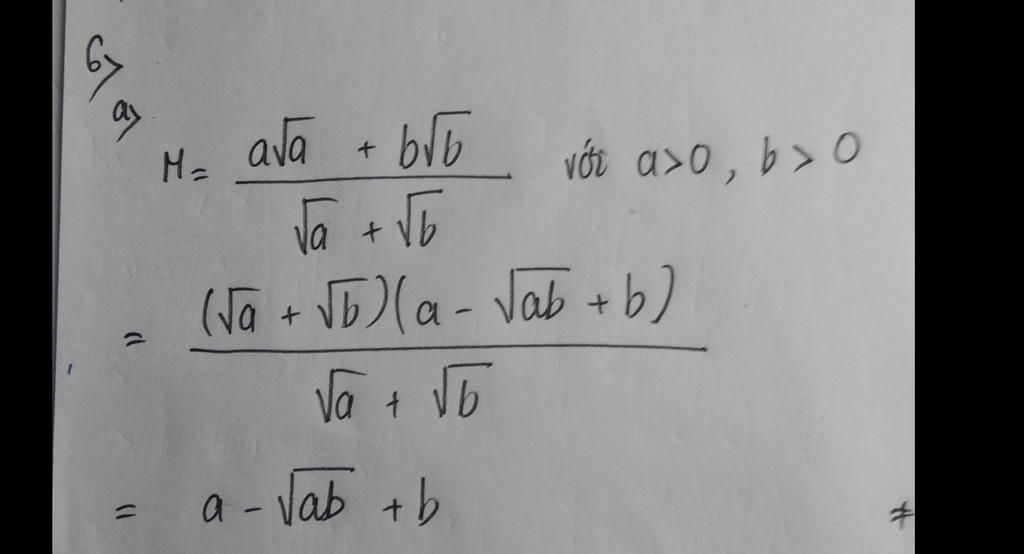 6>
a>
M = (a√a + b√b) / (√a + √b) với a>0, b>0
= (√a + √b)(a - √ab + b) / (√a + √b)
= a - √ab + b #